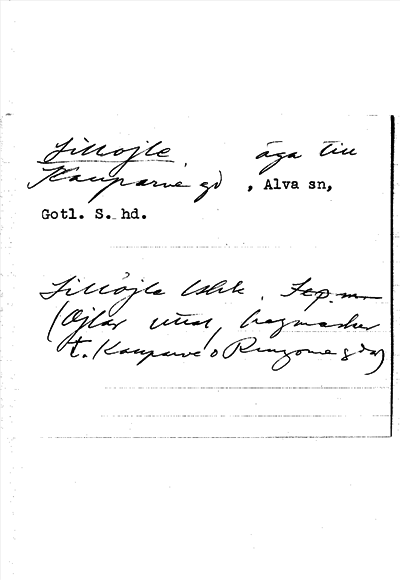 Lilløjle, äga till
Kauparve gd, Alva sn,
Gotl. S. hd.
Lilløjle
(Ojlar utial, hagmarker
t. Kauparve o Ringome gdar)